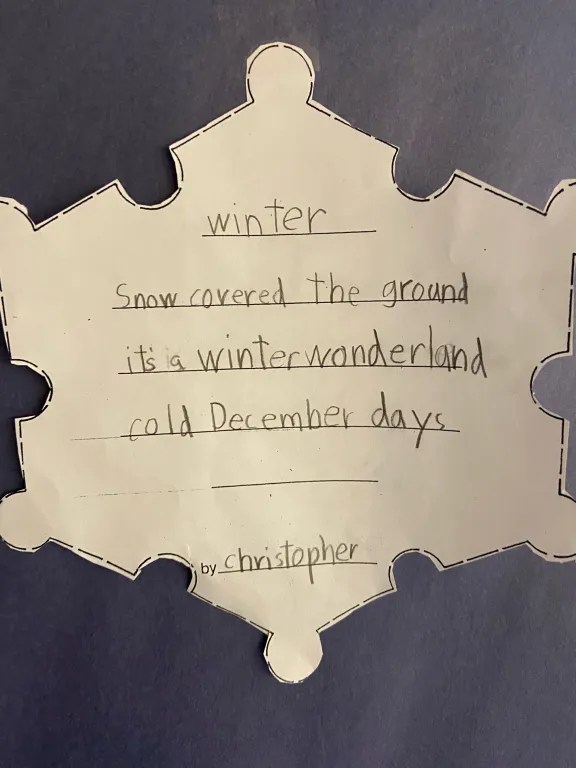 winter
Snow covered the ground
it's a winter wonderland
cold December days
by christopher